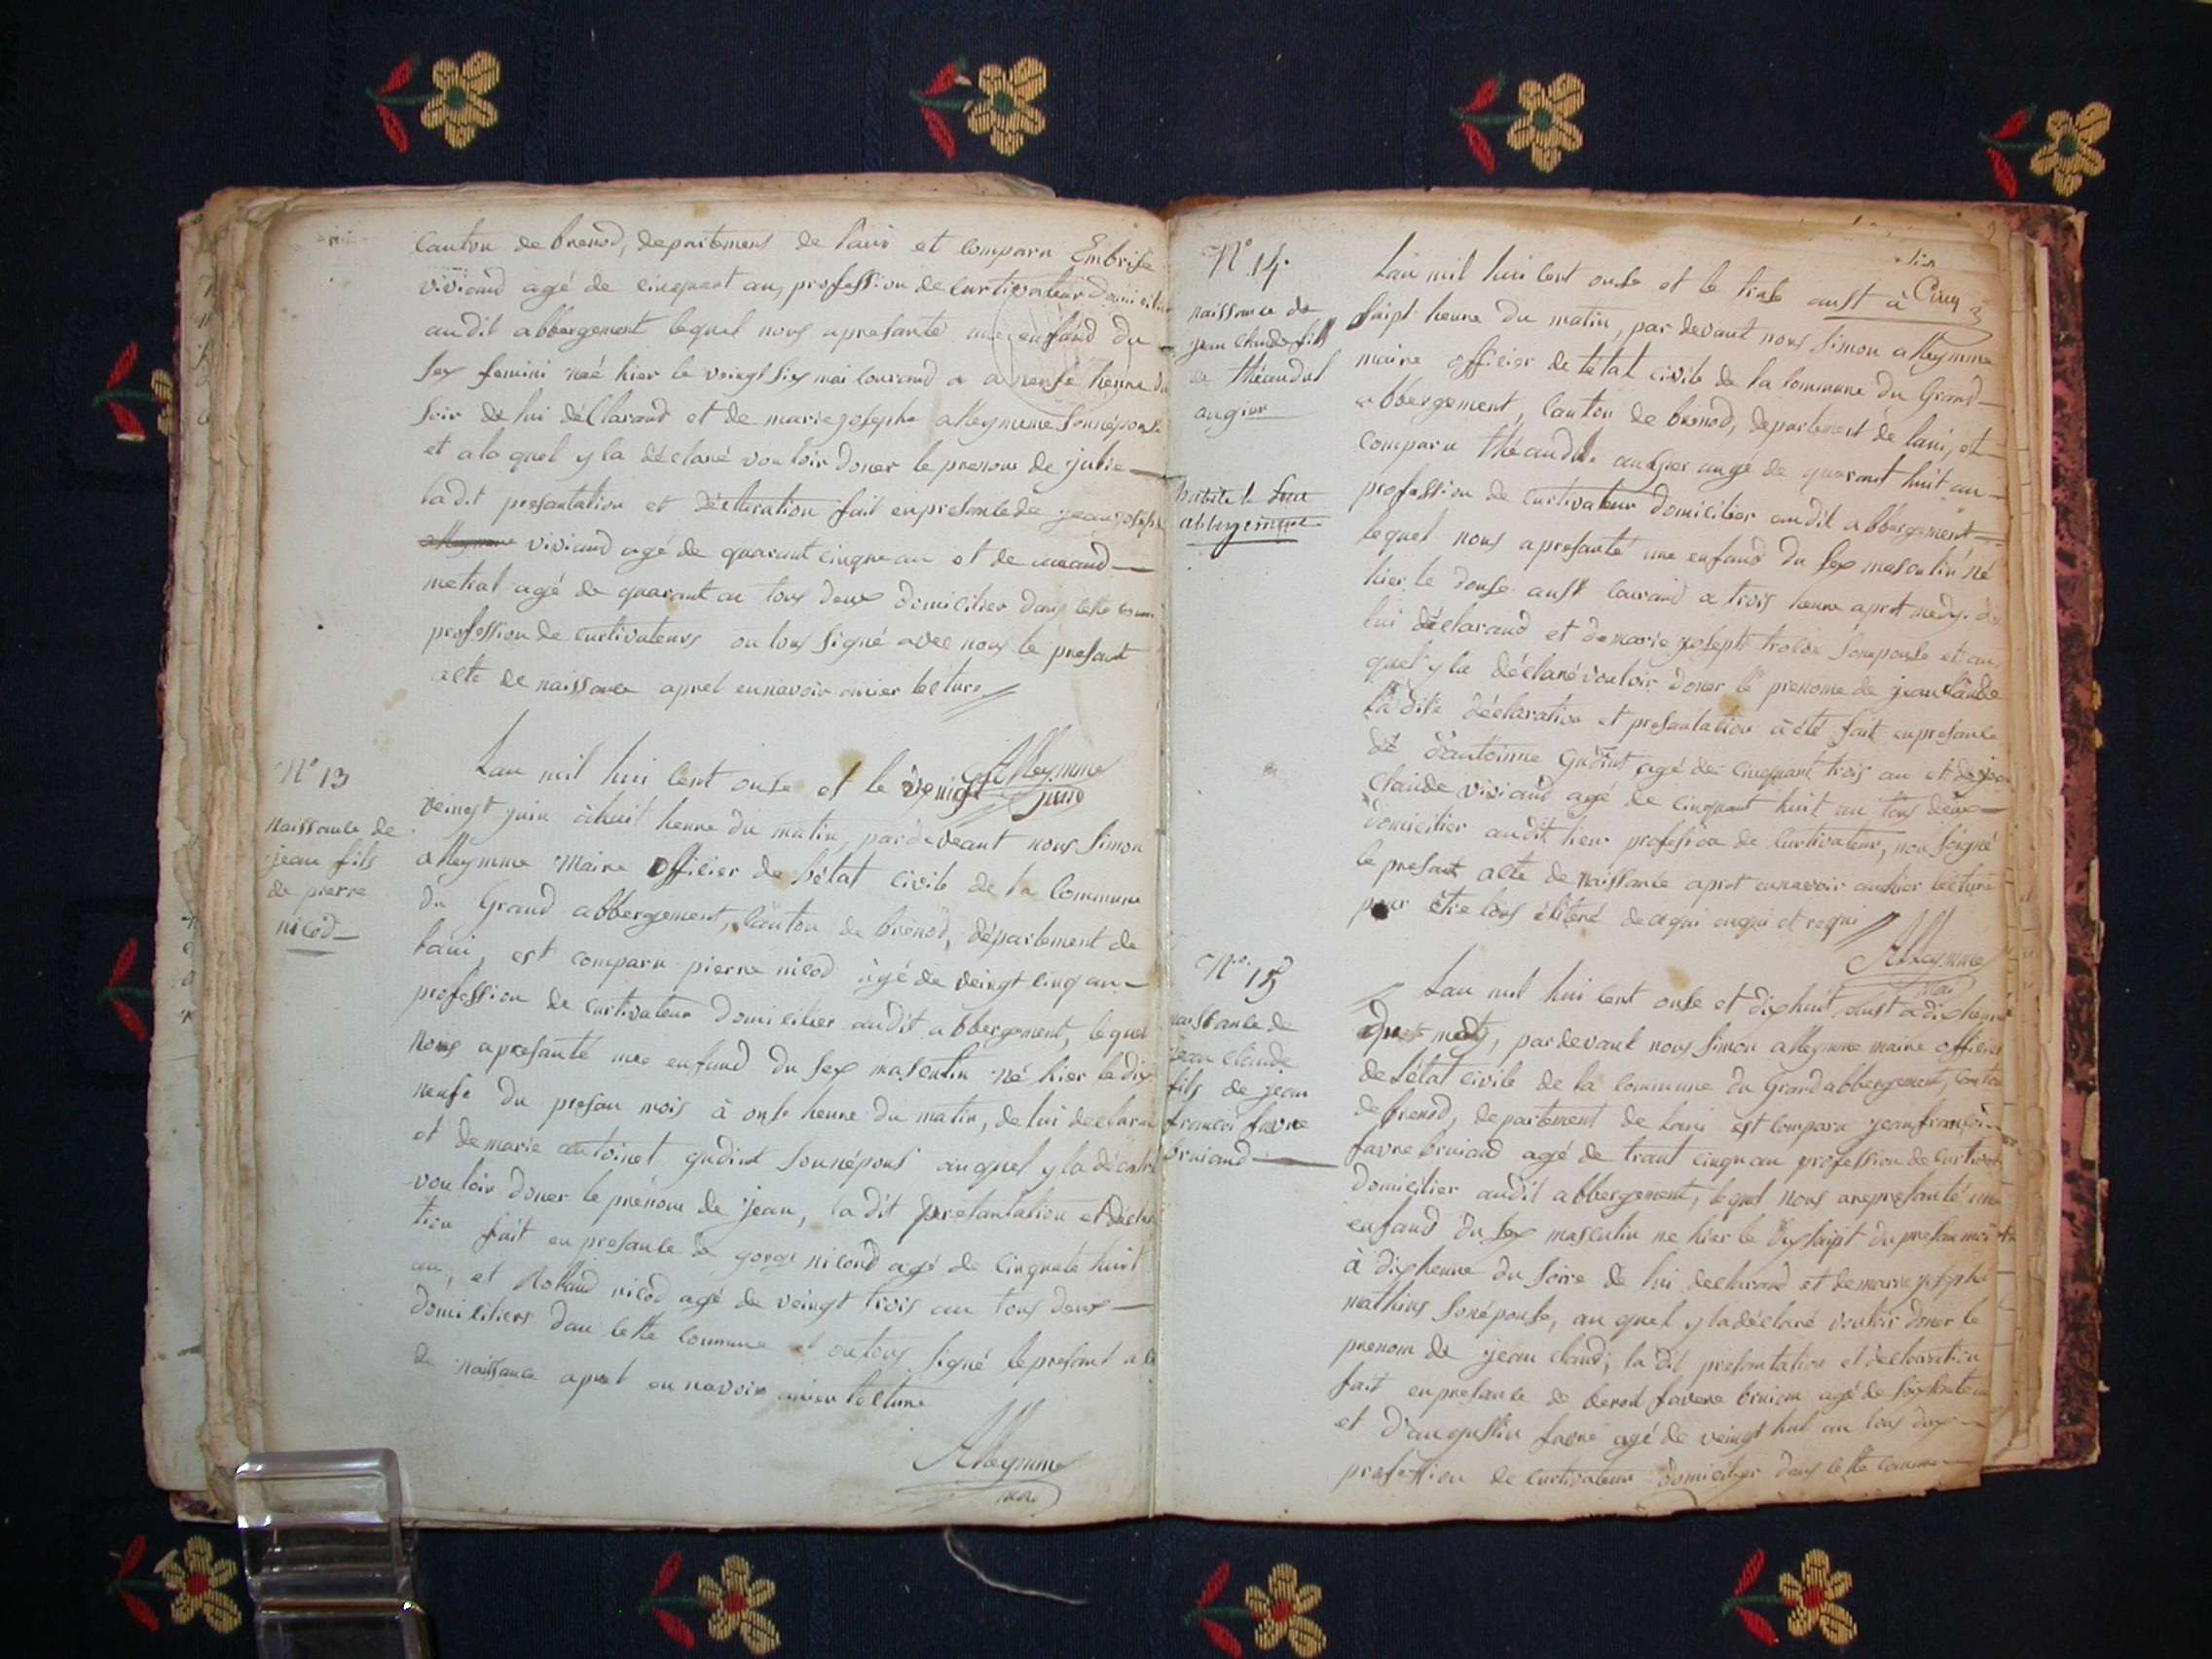 canton de brenod, departemens de lain et comparu Embroise
viviand agé de cinquant an, profession de curtivateur domicilier
audit abbergement lequel nous apresanté une enfand du
sex femini néé hier le veingt six mai courand a neufe heure du
soir de lui déclarand et de marie josephe alleymme sonnépouse
et a la quel y la déclaré vouloir doner le prenom de julie
ladit presantation et déclaration fait enpresanle de jean joseph
viviand agé de quarant cinque an et de
metral agé de quarant an tous deux domicilier dans cette
profession de curtivateurs on tous signé avec nous le presant
alte de naissance apret ennavoir lecture
Alleymme
N° 13
naissance de
jean fils
de pierre
nicod
Lan mil hui cent onse et le veingt juin
veingt juin à huit heure du matin, par deveant nous Simon
alleymme Maire officier de l'état civile de la Commune
du Grand abbergement, canton de brénod, département de
lain, est comparu pierre nicod agé de veingt cinq an
profession de curtivateur domicilier audit abbergement, lequel
nous apresanté une enfand du sex masculin né hier le dix
neufe du presan mois à onse heure du matin, de lui declarand
et de marie antoinet gudint sonnépous auquel y la déclaré
vouloir doner le prénom de jean, la dit presantation et déclara
tion fait en presance de gorge nicoud agé de cinquate huit
an, et Rolland nicod agé de veingt trois an tous deux
domiciliers dan cette commune et ontous signé le presant alte
de naissance apret en navoir lecture
Alleymme
N° 14.
naissance de
jean claude fils
de théaudul
augier
abbergement
Cinq
Lan mil hui cent onse et le treise aust à
saipt heure du matin, par devant nous Simon alleymme
maire officier de l'état civile de la commune du Grand
abbergement, canton de brénod, departement de lain, et
comparu théaudule augier augé de quarant huit an
profession de curtivateur domicilier audit abbergement
lequel nous apresanté une enfand du sex masculin né
hier le douse aust courand a trois heure apret medy. de
lui déclarand et de marie joseph sonepouse et au
quel y la déclaré vouloir doner le prenome de jean claude
la dite déclaration et presantation à été fait enpresance
de d'antoinne gudint agé de cinquant trois an et de jean
claude viviand agé de cinquant huit an tous deux
domicilier audit lieu profession de curtivateur, nou soigné
le presant alte de naissance apret ennavoir lecture
pour être lous éliteré de aqui enqui et requi
Alleymme
N° 15
naissance de
jean claude
fils de jean
francoi favre
bruiand
Lan mil hui cent onse et dixhuit aust à dix heure
du matin, pardevant nous Simon alleymme maire officier
de l'état civile de la commune du Grand abbergement, canton
de brenod, departement de lain est comparu jean françoi
favre bruiand agé de trant cinq an profession de curtivateur
domicilier audit abbergement, lequel nous arepresanté une
enfand du sex masculin ne hier le dix saipt du presan mois
à dix heure du soire de lui declarand et de marie josephe
mathius sonépouse, au quel y la déclaré vouloir doner le
prenom de jean claude, la dit presantation et declaration
fait enpresance de benoit favre bruian agé de soixsante an
et d'augustin favre agé de veingt huit an tous deux
profession de curtivateur domicilier dans cette commune